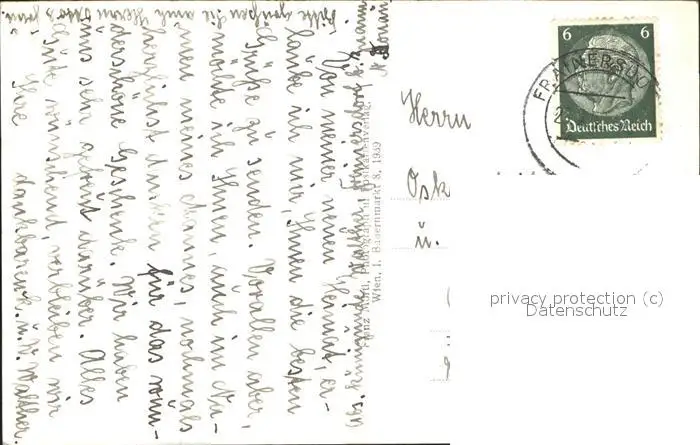 Abs. Kunigunde Walther, Frainersdorf b. Znaim
Von meiner neuen Heimat, er-
laube ich mir, Ihnen die besten
Grüße zu senden. Vorallen aber,
möchte ich Ihnen, auch im Na-
men meines Mannes, nochmals
herzlichst danken für das wun-
derschöne Geschenk. Wir haben
uns sehr gefreut darüber. Alles
Gute wünschend, verbleiben wir
Ihre dankbaren K. u. V. Walther.
Bitte grüßen Sie auch Herrn Otto & Frau.
Franz Mörtl, Photograph u. Postkartenverlag,
Wien, I. Bauernmarkt 8, 1939
Herrn
Osk
u.
6 6
Deutsches Reich
FRAINERSDO
privacy protection (c)
Datenschutz